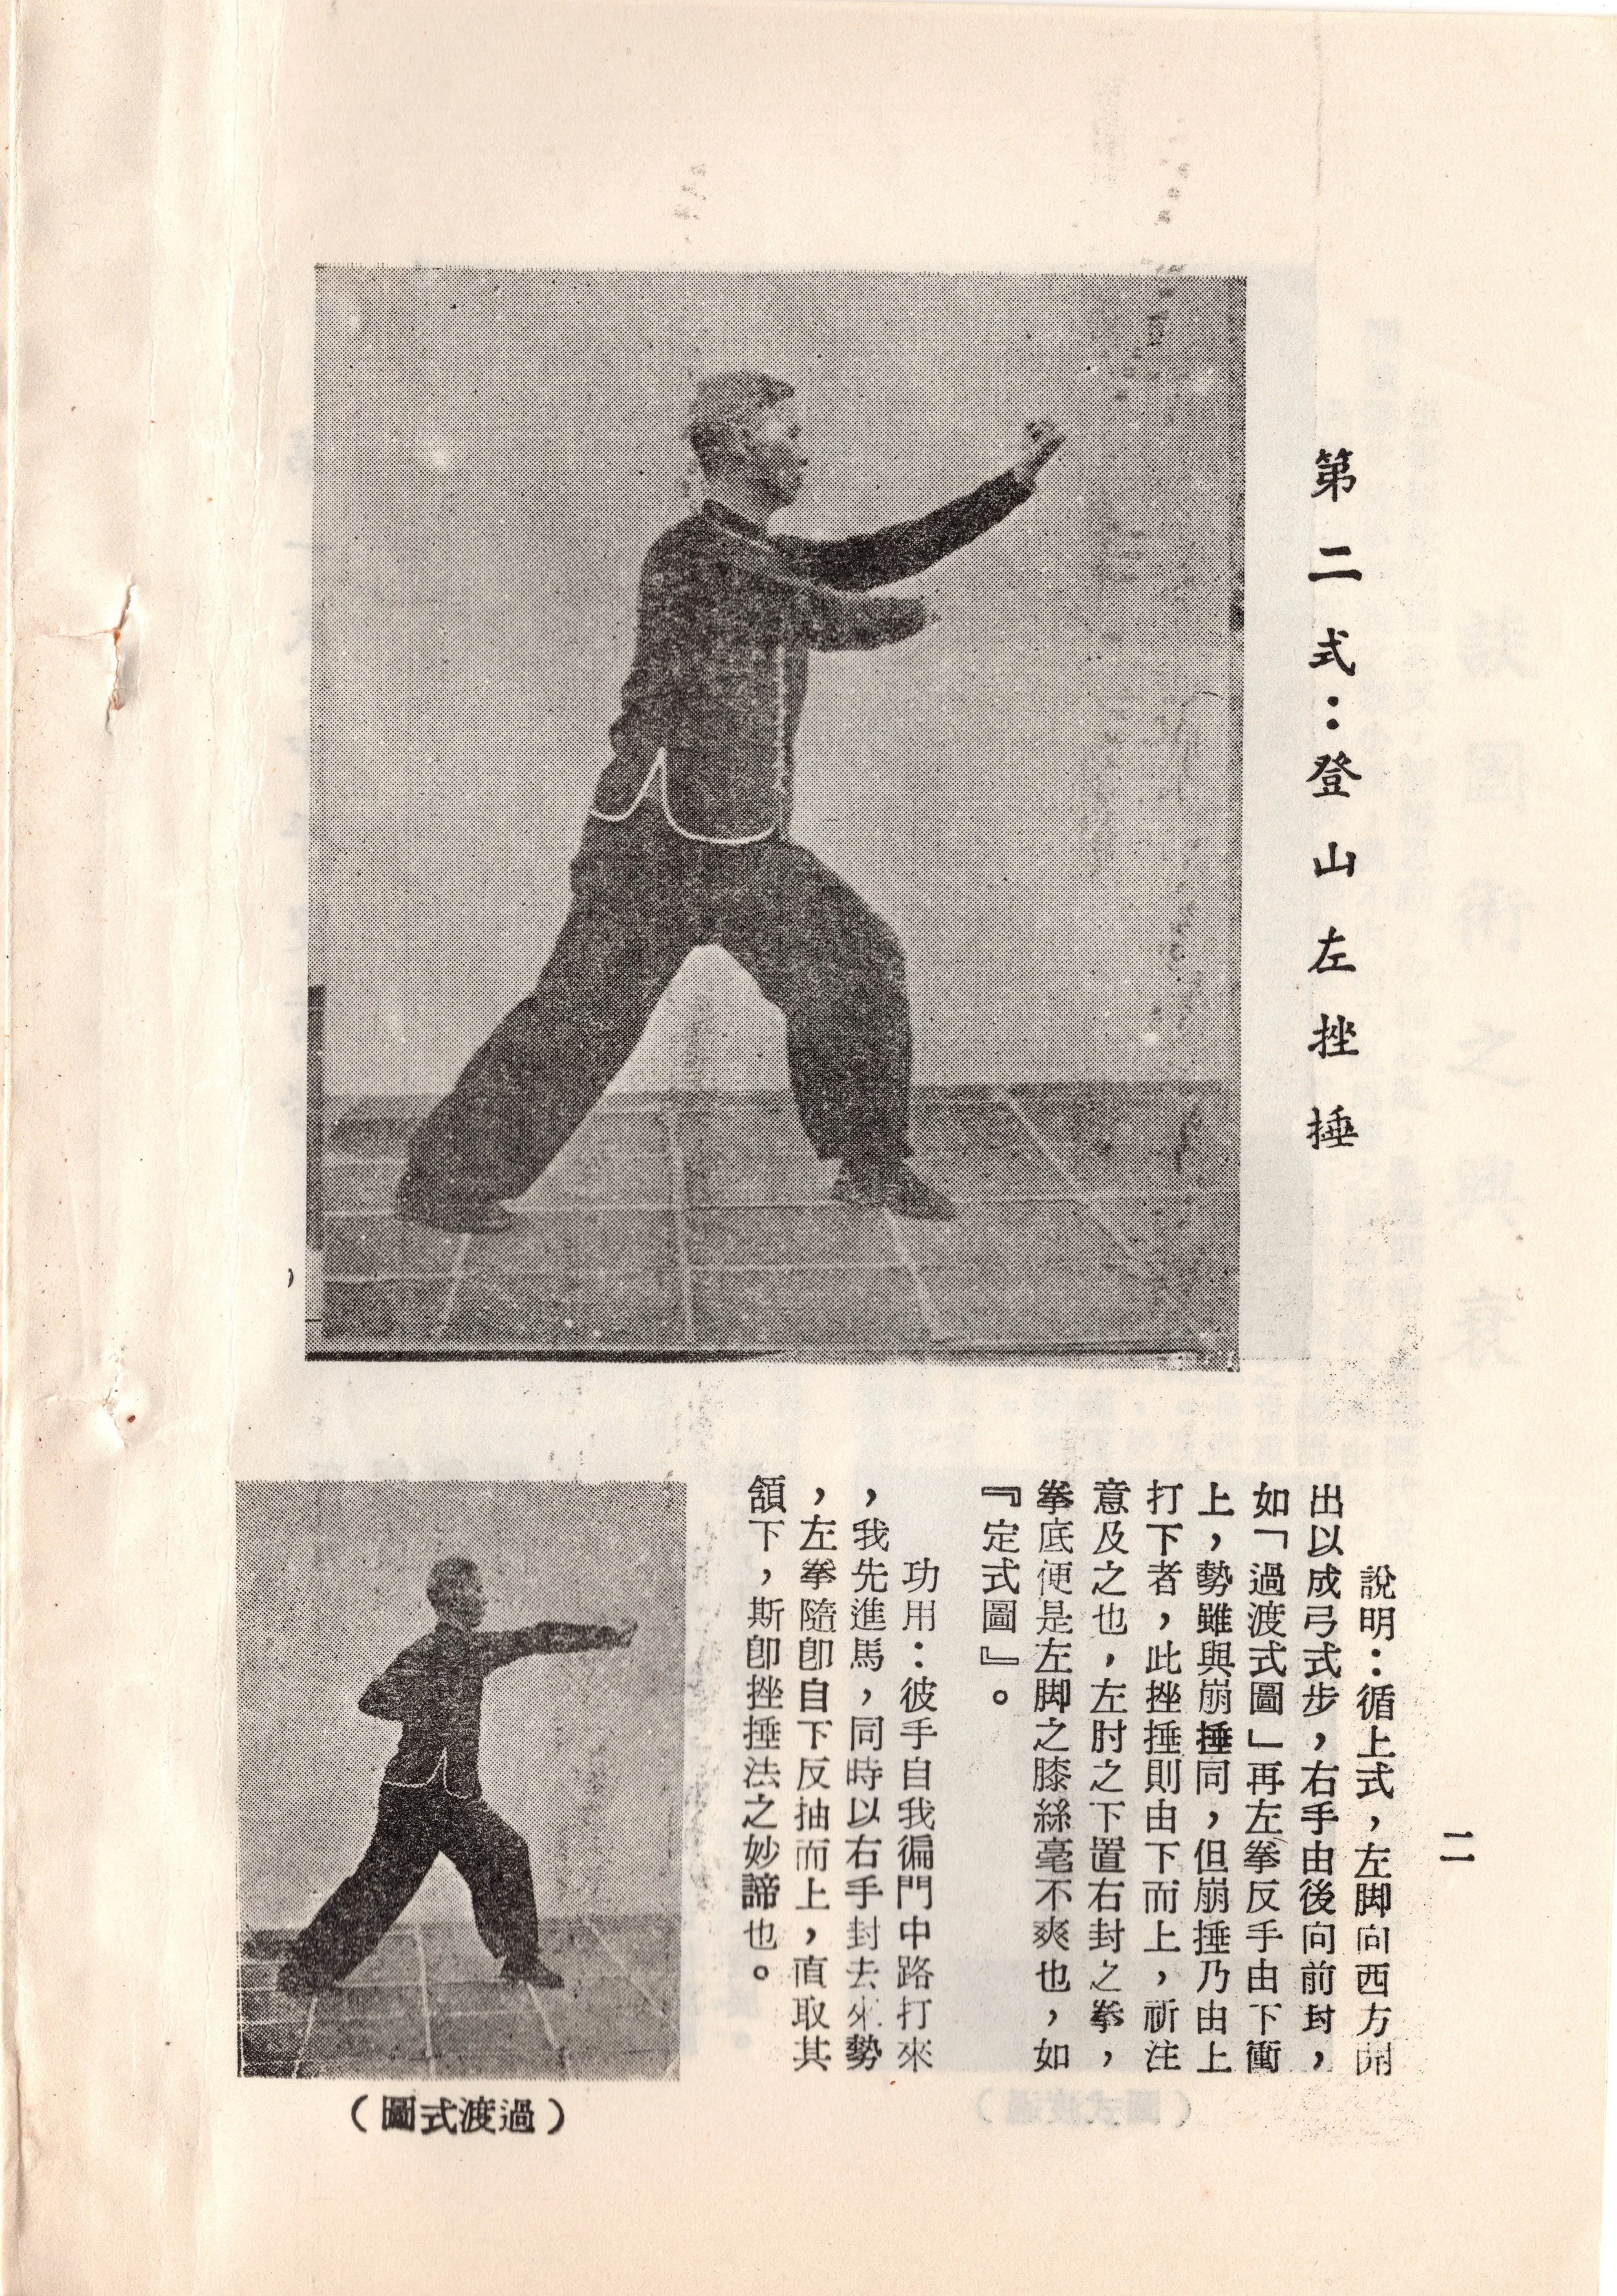 第二式：登山左挫捶
二
說明：循上式，左脚向西方開
出以成弓式步，右手由後向前封，
如「過渡式圖」再左拳反手由下衝
上，勢雖與崩捶同，但崩捶乃由上
打下者，此挫捶則由下而上，祈注
意及之也，左肘之下置右封之拳，
拳底便是左脚之膝絲毫不爽也，如
『定式圖』。
功用：彼手自我徧門中路打來
，我先進馬，同時以右手封去來勢
，左拳隨卽自下反抽而上，直取其
頷下，斯卽挫捶法之妙諦也。
（圖式渡過）